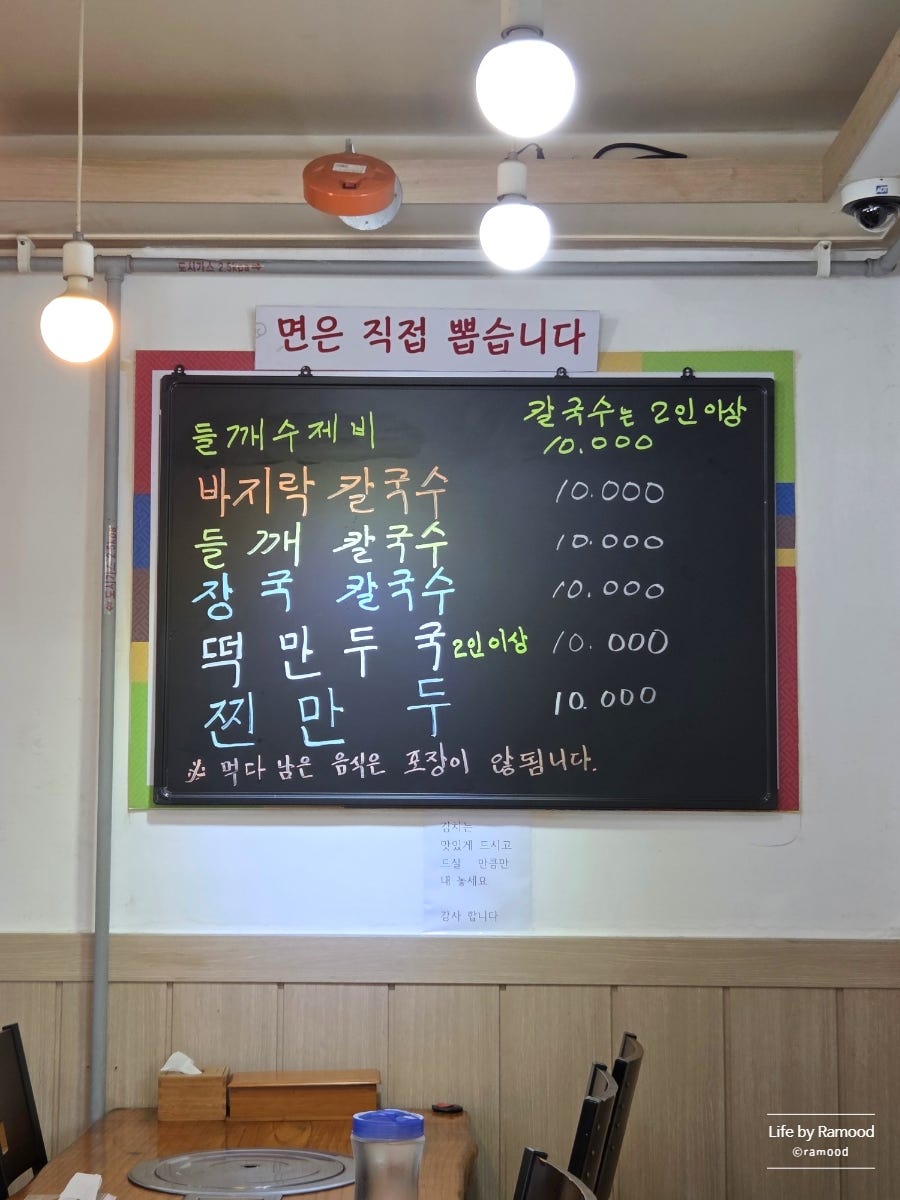 도시가스 2.5kpa
면은 직접 뽑습니다
칼국수는 2인이상
들깨수제비 10.000
바지락 칼국수 10.000
들깨 칼국수 10.000
장국 칼국수 10.000
떡만두국 2인이상 10.000
찐만두 10.000
※ 먹다 남은 음식은 포장이 않됩니다.
김치는
맛있게 드시고
드실 만큼만
내 놓세요
감사 합니다
ADT
Life by Ramood
©ramood